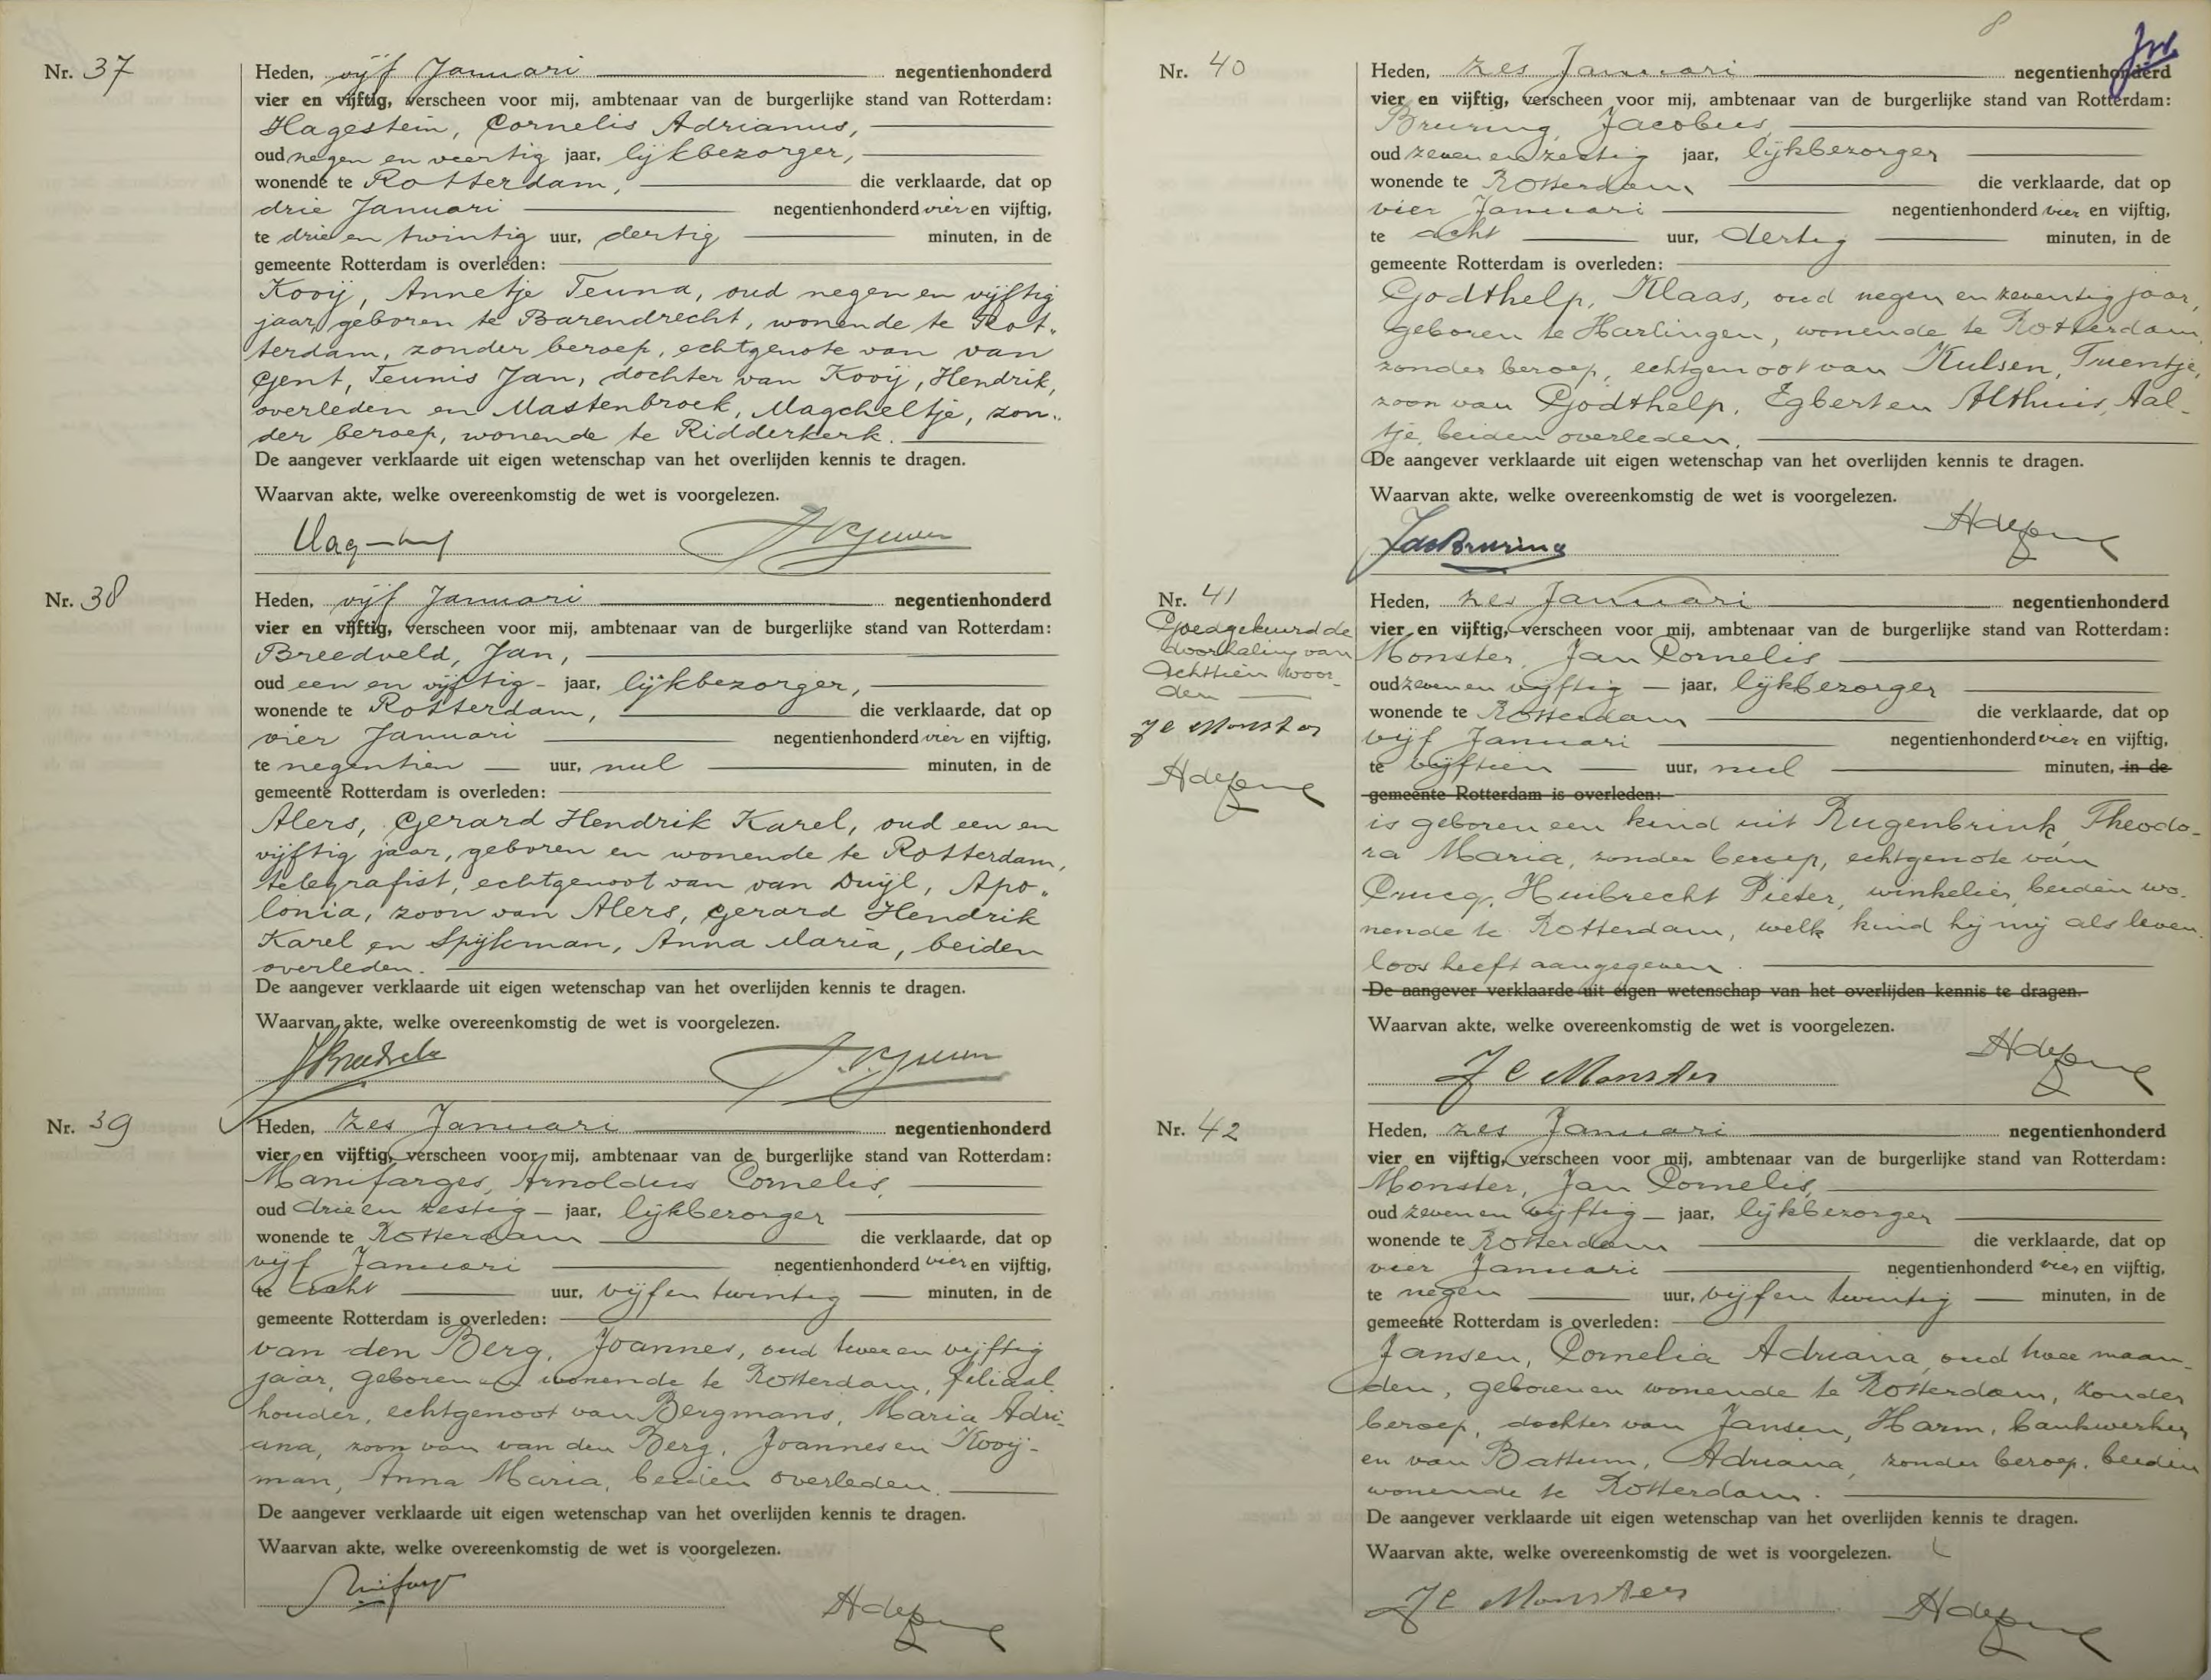 Nr. 37
Heden, vijf Januari negentienhonderd
vier en vijftig, verscheen voor mij, ambtenaar van de burgerlijke stand van Rotterdam:
Hagestein, Cornelis Adrianus,
oud negen en veertig jaar, lijkbezorger,
wonende te Rotterdam, die verklaarde, dat op
drie Januari negentienhonderd vier en vijftig,
te drie en twintig uur, dertig minuten, in de
gemeente Rotterdam is overleden:
Kooij, Annetje Teuna, oud negen en vijftig
jaar, geboren te Barendrecht, wonende te Rot„
terdam, zonder beroep, echtgenote van van
Gent, Teunis Jan, dochter van Kooij, Hendrik,
overleden en Mastenbroek, Magcheltje, zon„
der beroep, wonende te Ridderkerk.
De aangever verklaarde uit eigen wetenschap van het overlijden kennis te dragen.
Waarvan akte, welke overeenkomstig de wet is voorgelezen.
Nr. 38
Heden, vijf Januari negentienhonderd
vier en vijftig, verscheen voor mij, ambtenaar van de burgerlijke stand van Rotterdam:
Breedveld, Jan,
oud een en vijftig - jaar, lijkbezorger,
wonende te Rotterdam, die verklaarde, dat op
vier Januari negentienhonderd vier en vijftig,
te negentien uur, nul minuten, in de
gemeente Rotterdam is overleden:
Alers, Gerard Hendrik Karel, oud een en
vijftig jaar, geboren en wonende te Rotterdam,
telegrafist, echtgenoot van van Duijl, Apo„
lonia, zoon van Alers, Gerard Hendrik
Karel en Spijkman, Anna Maria, beiden
overleden.
De aangever verklaarde uit eigen wetenschap van het overlijden kennis te dragen.
Waarvan akte, welke overeenkomstig de wet is voorgelezen.
JBreedveld
Nr. 39
Heden, zes Januari negentienhonderd
vier en vijftig, verscheen voor mij, ambtenaar van de burgerlijke stand van Rotterdam:
Manifarges, Arnoldus Cornelis,
oud drie en zestig - jaar, lijkbezorger
wonende te Rotterdam die verklaarde, dat op
vijf Januari negentienhonderd vier en vijftig,
te acht uur, vijf en twintig minuten, in de
gemeente Rotterdam is overleden:
van den Berg, Joannes, oud twee en vijftig
jaar, geboren en wonende te Rotterdam, filiaal
houder, echtgenoot van Bergmans, Maria Adri-
ana, zoon van van den Berg, Joannes en Kooij-
man, Anna Maria, beiden overleden.
De aangever verklaarde uit eigen wetenschap van het overlijden kennis te dragen.
Waarvan akte, welke overeenkomstig de wet is voorgelezen.
8
Nr. 40
Heden, zes Januari negentienhonderd
vier en vijftig, verscheen voor mij, ambtenaar van de burgerlijke stand van Rotterdam:
Bruring, Jacobus,
oud zeven en zestig jaar, lijkbezorger
wonende te Rotterdam die verklaarde, dat op
vier Januari negentienhonderd vier en vijftig,
te acht uur, dertig minuten, in de
gemeente Rotterdam is overleden:
Godthelp, Klaas, oud negen en zeventig jaar,
geboren te Harlingen, wonende te Rotterdam,
zonder beroep, echtgenoot van Kulsen, Trientje,
zoon van Godthelp, Egbert en Althuis, Aal-
tje, beiden overleden.
De aangever verklaarde uit eigen wetenschap van het overlijden kennis te dragen.
Waarvan akte, welke overeenkomstig de wet is voorgelezen.
JacBruring
Nr. 41
Goedgekeurd de
doorhaling van
achttien woor-
den
J C Monster
Heden, zes Januari negentienhonderd
vier en vijftig, verscheen voor mij, ambtenaar van de burgerlijke stand van Rotterdam:
Monster, Jan Cornelis
oud zeven en vijftig - jaar, lijkbezorger
wonende te Rotterdam die verklaarde, dat op
vijf Januari negentienhonderd vier en vijftig,
te vijftien uur, nul minuten, in de
gemeente Rotterdam is overleden:
is geboren een kind uit Rugenbrink, Theodo-
ra Maria, zonder beroep, echtgenote van
Crucq, Huibrecht Pieter, winkelier, beiden wo-
nende te Rotterdam, welk kind hij mij als leven-
loos heeft aangegeven.
De aangever verklaarde uit eigen wetenschap van het overlijden kennis te dragen.
Waarvan akte, welke overeenkomstig de wet is voorgelezen.
J C Monster
Nr. 42
Heden, zes Januari negentienhonderd
vier en vijftig, verscheen voor mij, ambtenaar van de burgerlijke stand van Rotterdam:
Monster, Jan Cornelis,
oud zeven en vijftig - jaar, lijkbezorger
wonende te Rotterdam die verklaarde, dat op
vier Januari negentienhonderd vier en vijftig,
te negen uur, vijf en twintig minuten, in de
gemeente Rotterdam is overleden:
Jansen, Cornelia Adriana, oud twee maan-
den, geboren en wonende te Rotterdam, zonder
beroep, dochter van Jansen, Harm, bankwerker
en van Battum, Adriana, zonder beroep, beiden
wonende te Rotterdam.
De aangever verklaarde uit eigen wetenschap van het overlijden kennis te dragen.
Waarvan akte, welke overeenkomstig de wet is voorgelezen.
J C Monster